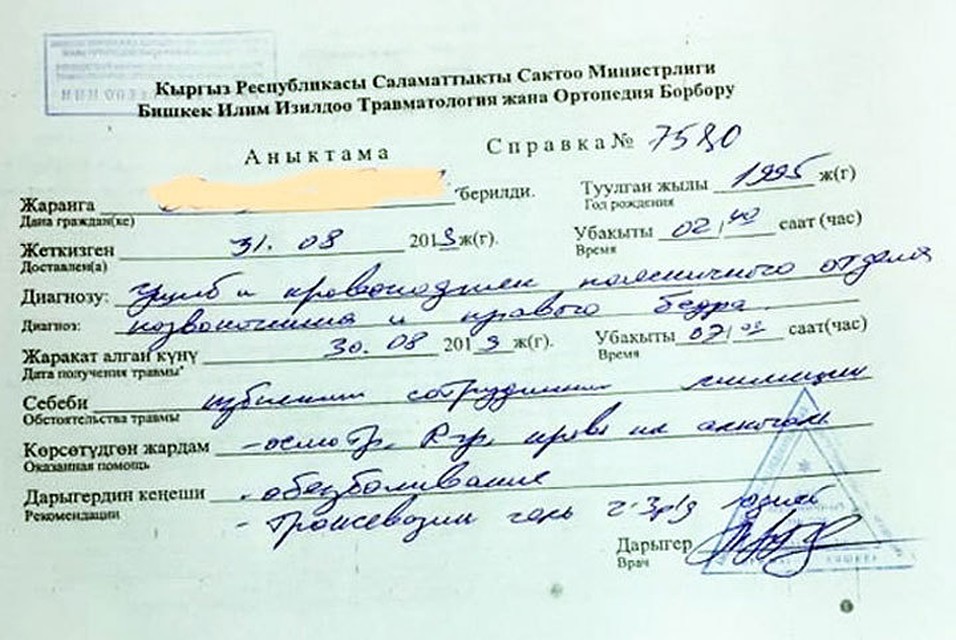 Кыргыз Республикасы Саламаттыкты Сактоо Министрлиги
Бишкек Илим Изилдоо Травматология жана Ортопедия Борбору
Аныктама Справка № 7580
Жаранга берилди. Туулган жылы 1995 ж(г)
Дана граждан(ке) Год рождения
Жеткизген 31. 08 2013 ж(г). Убакыты 02, 40 саат (час)
Доставлен(а) Время
Диагнозу: Ушиб и кровоподтек поясничного отдела
Диагноз: позвоночника и правого бедра
Жаракат алган күнү 30. 08 2013 ж(г). Убакыты саат(час)
Дата получения травмы Время
Себеби избиении сотрудники милиции
Обстоятельства травмы
Көрсөтүдгөн жардам - осмотр, R-гр, кровь на алкоголь
Оказанная помощь
Дарыгердин кеңеши - обезболивание
Рекомендации - Троксевазин гель
Дарыгер
Врач